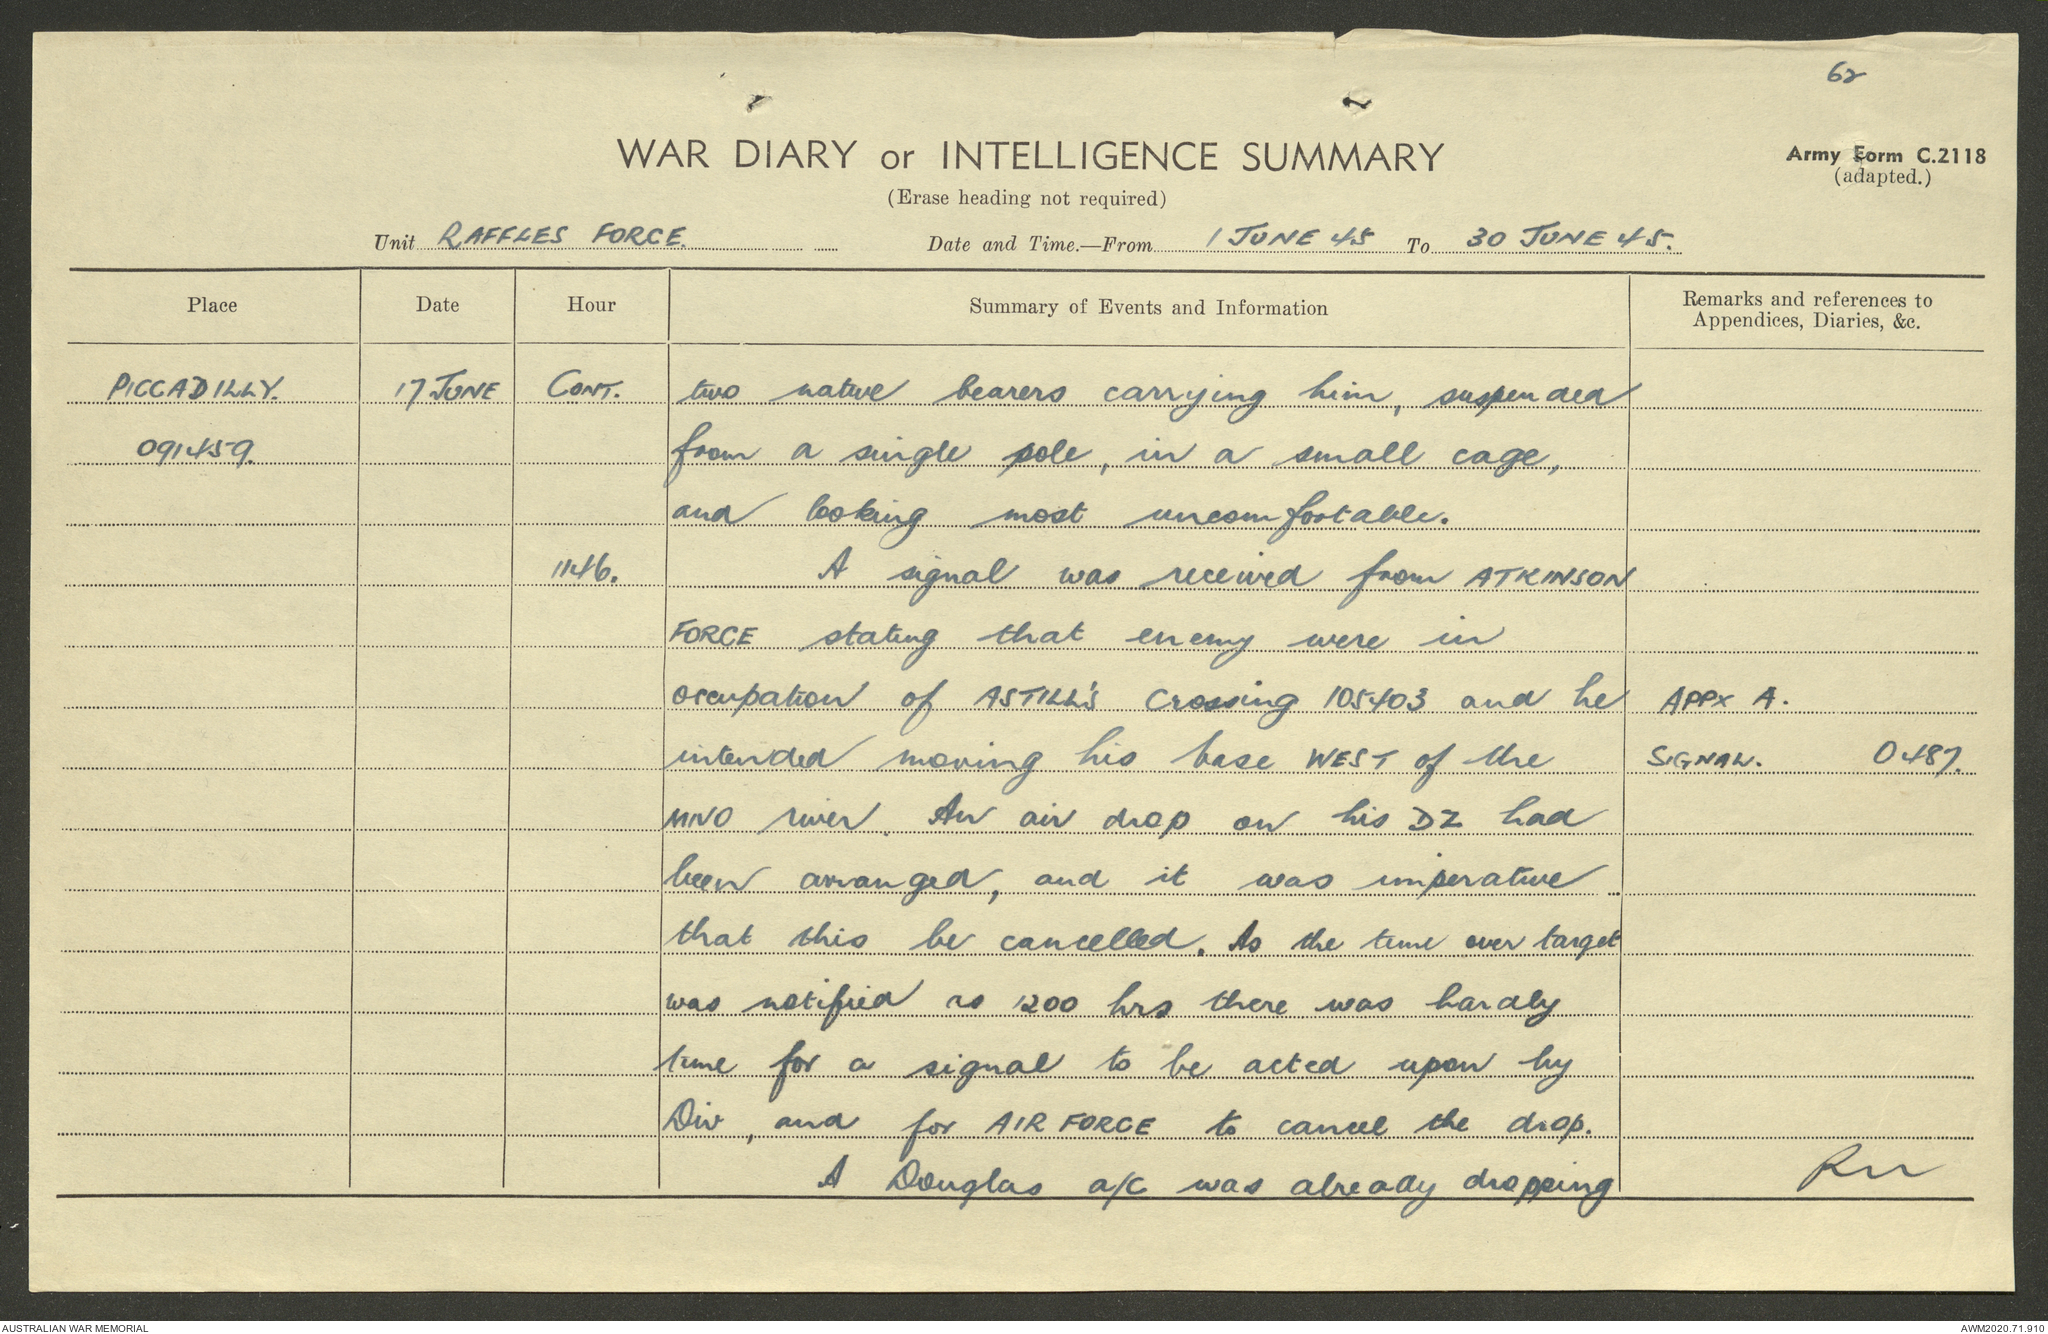 62
WAR DIARY or INTELLIGENCE SUMMARY
Army Form C.2118
(Erase heading not required)
(adapted.)
Unit RAFFLES FORCE. Date and Time.—From 1 JUNE 45 To 30 JUNE 45.
Place Date Hour Summary of Events and Information Remarks and references to
Appendices, Diaries, &c.
PICCADILLY. 17 JUNE CONT. two native bearers carrying him, suspended
091459. from a single pole, in a small cage,
and looking most uncomfortable.
1146. A signal was received from ATKINSON
FORCE stating that enemy were in
occupation of ASTILL'S Crossing 105403 and he APPX A.
intended moving his base WEST of the SIGNAL. O 487.
MIVO river. An air drop on his DZ had
been arranged, and it was imperative
that this be cancelled. As the time over target
was notified as 1200 hrs there was hardly
time for a signal to be acted upon by
Div, and for AIR FORCE to cancel the drop.
A Douglas a/c was already dropping
AUSTRALIAN WAR MEMORIAL AWM2020.71.910